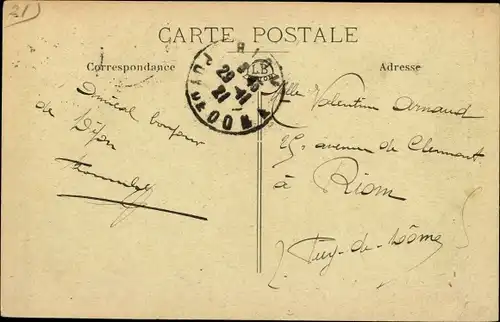 21
CARTE POSTALE
Correspondance
Adresse
LB
RIOM
PUY-DE-DOME
29-11
21
Amical bonjour
de Dijon
Mlle Valentine Arnaud
25 avenue de Clermont
à Riom
Puy-de-Dôme